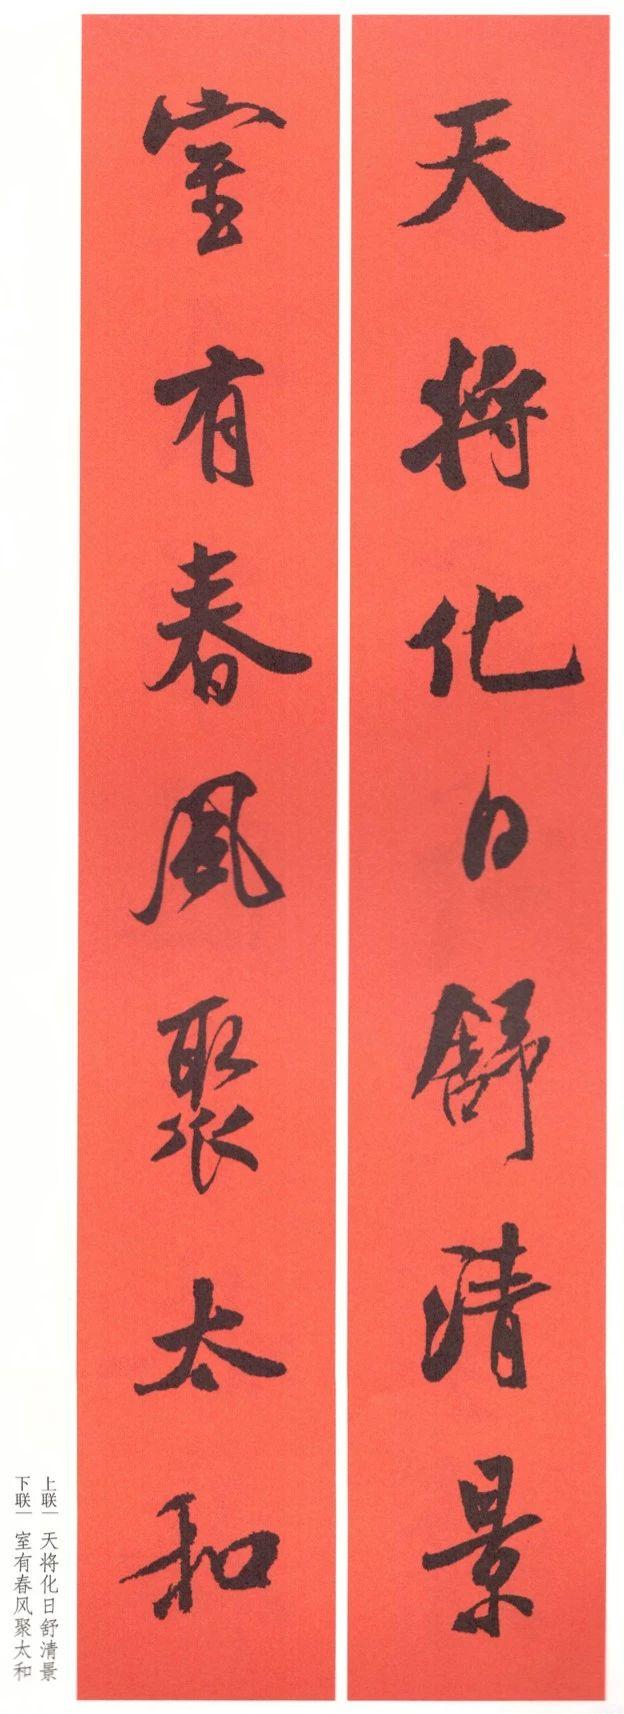 天将化日舒清景
室有春风聚太和
上联｜天将化日舒清景
下联｜室有春风聚太和